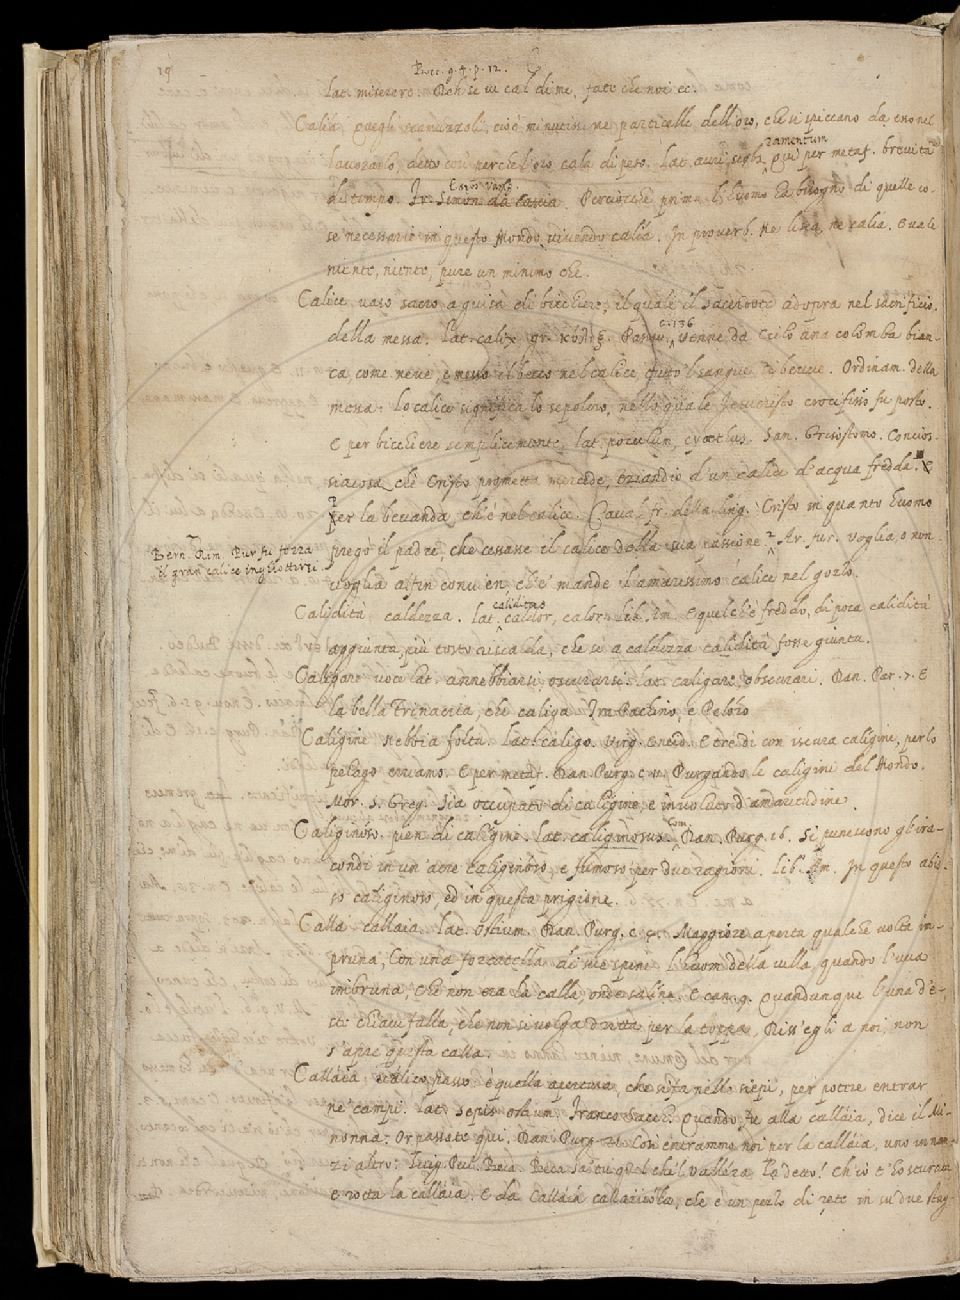 19
Bocc. g. 4. p. 12.
lat. miserere. Deh se vi cal di me, fate che noi ec.
Calía quegli scamuzzoli, cioè minutissime particelle dell'oro, che si spiccano da esso nel
ramentum
lavorarlo, detto così perchè l'oro cala di peso. Lat. auri Qui per metaf. brevità
di tempo. Fr. Simon da Cascia. Perciocchè prima l'huomo ha bisogno di quelle co-
se necessarie in questo Mondo vivendo calía. In proverb. Ne lisca ne calía. E vale
niente, niente, pure un minimo che.
Calice, vaso sacro a guisa di bicchiere, il quale il sacerdote adopra nel sacrificio
c. 136
della messa. Lat. calix gr. κύλιξ. Passav. Venne da Cielo una colomba bian-
ca, come neve, e messo il becco nel calice, tutto 'l sangue si bevve. Ordinam. della
messa. Lo calice significa lo sepolcro, nello quale Jesucristo crocifisso fu posto.
E per bicchiere semplicemente, lat. poculum, cyathus. San. Grisostomo. Concios-
siacosa che Cristo prometta mercede, eziandio d'un calice d'acqua fredda. E
per la bevanda, ch'è nel calice. Caval. fr. della ling. Cristo in quanto huomo
pregò il padre, che cessasse il calice della sua passione. Ar. fur. Voglia, o non
Bern. Rim. Pur fu forza
'l gran calice inghiottirsi.
voglia alfin convien, ch'e' mande l'amarissimo calice nel gozlo.
caliditas
Calidità caldezza. lat. caldor, calor. Lib. Am. E quel ch'è freddo, di poca calidità
aggiunta, più tosto riscalda, che se a caldezza calidità fosse giunta.
Caligare voce lat. annebbiarsi oscurarsi. lat. caligare, obscurari. Dan. Par. 7. E
la bella Trinacria, che caliga Tra Pachino, e Peloro
Caligine Nebbia folta. Lat. caligo. Virg. Eneid. E tre dì con iscura caligine, per lo
pelago erriamo. E per metaf. Dan. Purg. c. 11. Purgando le caligini del Mondo.
Mor. S. Greg. Sia occupato di caligine, e involuto d'amaritudine.
Caliginoso. pien di caligine. Lat. caliginosus. Com. Dan. Purg. 16. Si punivono gl'ira-
condi in un' aere caliginoso, e fumoso per due ragioni. Lib. Am. In questo abis-
so caliginoso, ed in questa prigione.
Calla callaia. Lat. Ostium. Dan. Purg. c. 4. Maggiore aperta quale è volta im-
pruna, Con una forcatella di sue spine L'huom della villa, quando l'uva
imbruna, Che non era la calla, onde saline. E can. 9. Quandunque l'una d'e-
ste chiavi falla, che non si volga dritta per la toppa, Diss' egli a noi, non
s'apre questa calla.
Callaia valico, passo è quella apertura, che si fa nelle siepi, per potere entrar
ne' campi. lat. Sepis ostium. Franco Sacc. Quando fu alla callaia, dice il Mi-
nonna: Or passate qui. Dan. Purg. 21. Così entrammo noi per la callaia, uno innan-
zi altro: Luig. Pul. Beca. Beca sa' tu quel che 'l Vallera ha detto! Ch'io t'ho sturata
e rotta la callaia. E da Callaia callaiuola, che è un pezlo di rete in su due stag-